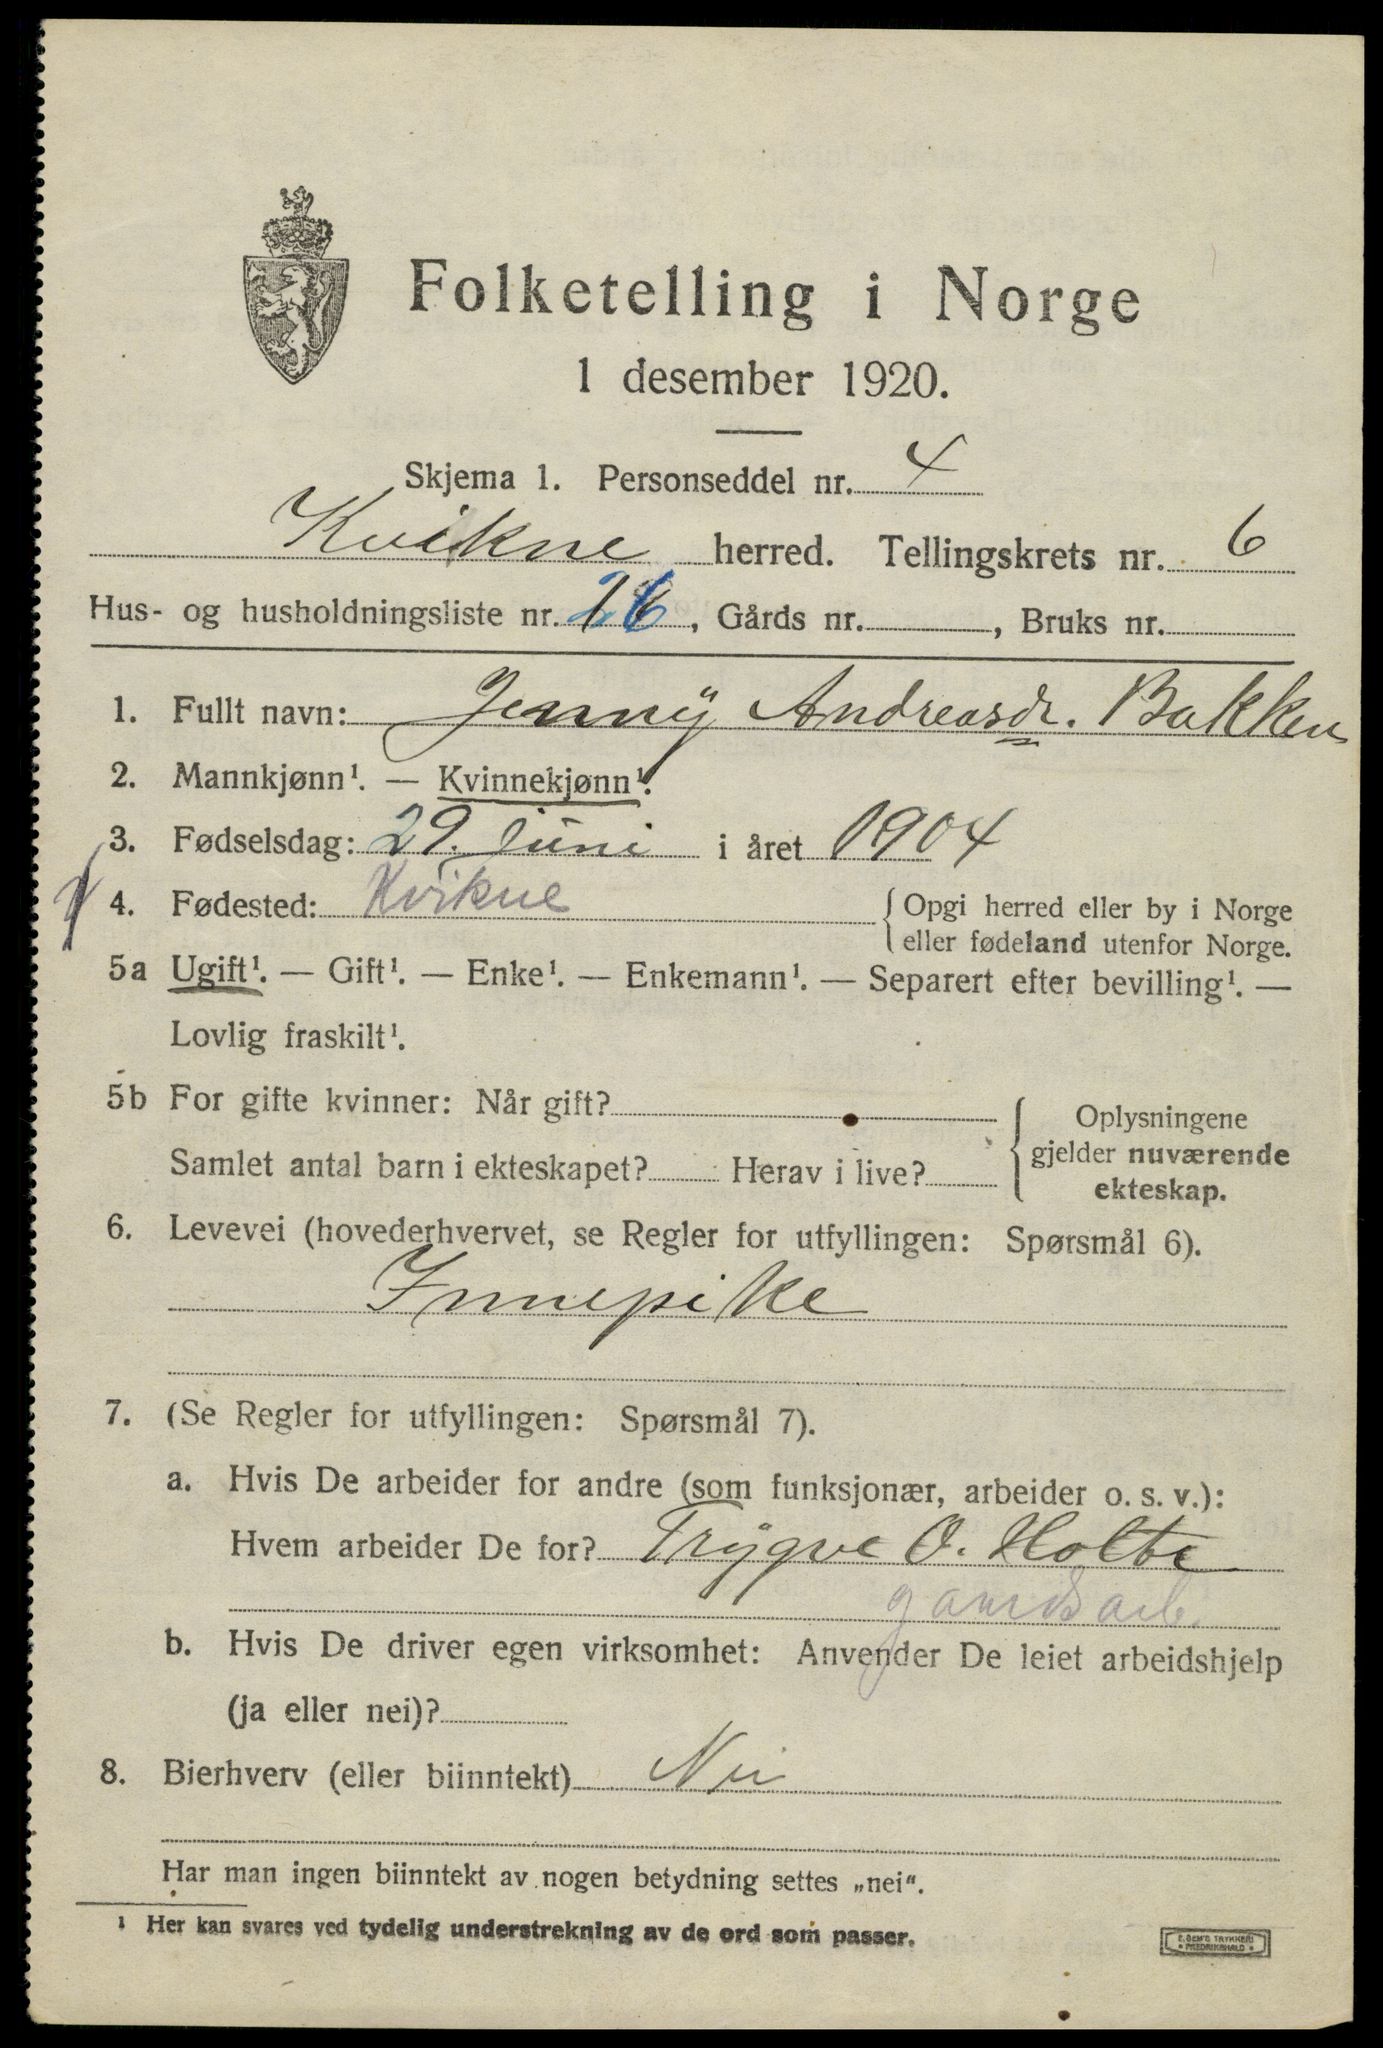 Folketelling i Norge
1 desember 1920.
Skjema 1. Personseddel nr. 4
Kvikne herred. Tellingskrets nr. 6
Hus- og husholdningsliste nr. 26, Gårds nr. , Bruks nr.
1. Fullt navn: Jenny Andreasdr. Bakken
2. Mannkjønn¹. — Kvinnekjønn¹.
3. Fødselsdag: 29. juni i året 1904
4. Fødested: Kvikne { Opgi herred eller by i Norge
eller fødeland utenfor Norge.
5a Ugift¹. — Gift¹. — Enke¹. — Enkemann¹. — Separert efter bevilling¹. —
Lovlig fraskilt¹.
5b For gifte kvinner: Når gift?
Samlet antal barn i ekteskapet? Herav i live?
Oplysningene
gjelder nuværende
ekteskap.
6. Levevei (hovederhvervet, se Regler for utfyllingen: Spørsmål 6).
Innepike
7. (Se Regler for utfyllingen: Spørsmål 7).
a. Hvis De arbeider for andre (som funksjonær, arbeider o. s. v.):
Hvem arbeider De for? Trygve O. Holte
gaardsarb.
b. Hvis De driver egen virksomhet: Anvender De leiet arbeidshjelp
(ja eller nei)?
8. Bierhverv (eller biinntekt) Nei
Har man ingen biinntekt av nogen betydning settes „nei“.
¹ Her kan svares ved tydelig understrekning av de ord som passer.
E. SEM'S TRYKKERI
• FREDRIKSHALD •